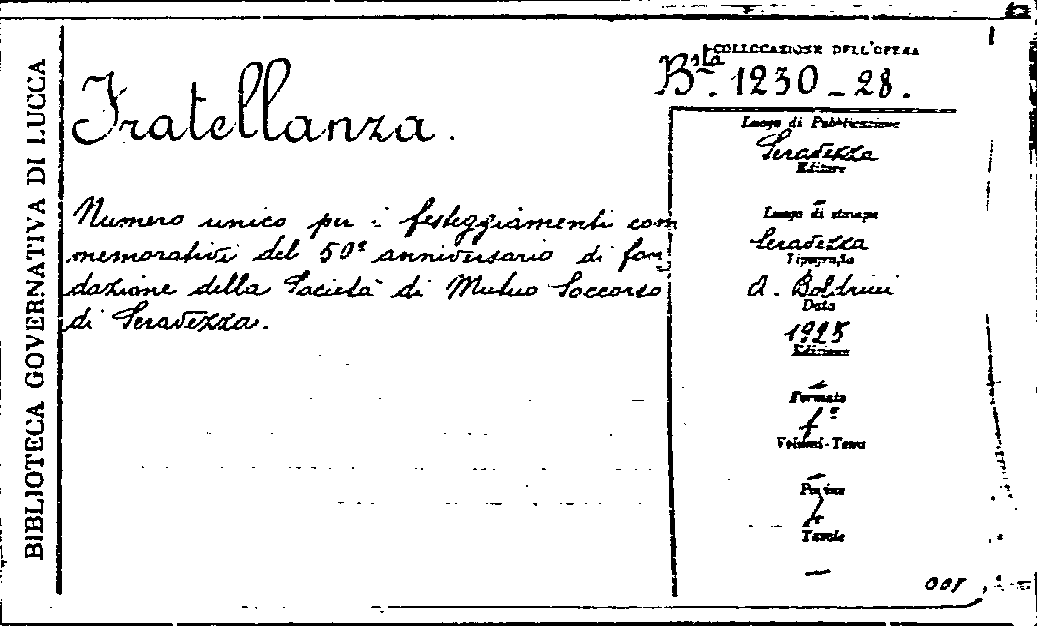 BIBLIOTECA GOVERNATIVA DI LUCCA
Fratellanza.
Numero unico per i festeggiamenti com
memorativi del 50° anniversario di fon=
dazione della Società di Mutuo Soccorso
di Seravezza.
COLLOCAZIONE DELL'OPERA
Bsta. 1230 - 28.
Luogo di Pubblicazione
Seravezza
Editore
—
Luogo di stampa
Seravezza
Tipografia
A. Boldrini
Data
1925
Edizione
—
Formato
f°
Volumi-Tomi
—
Pagine
Tavole
—